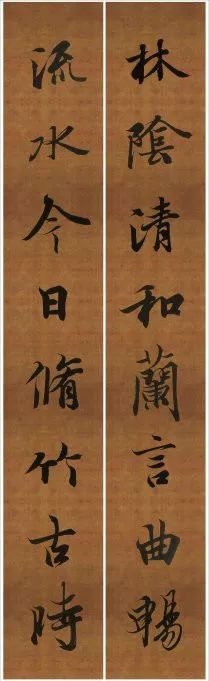 林陰清和蘭言曲暢
流水今日脩竹古時